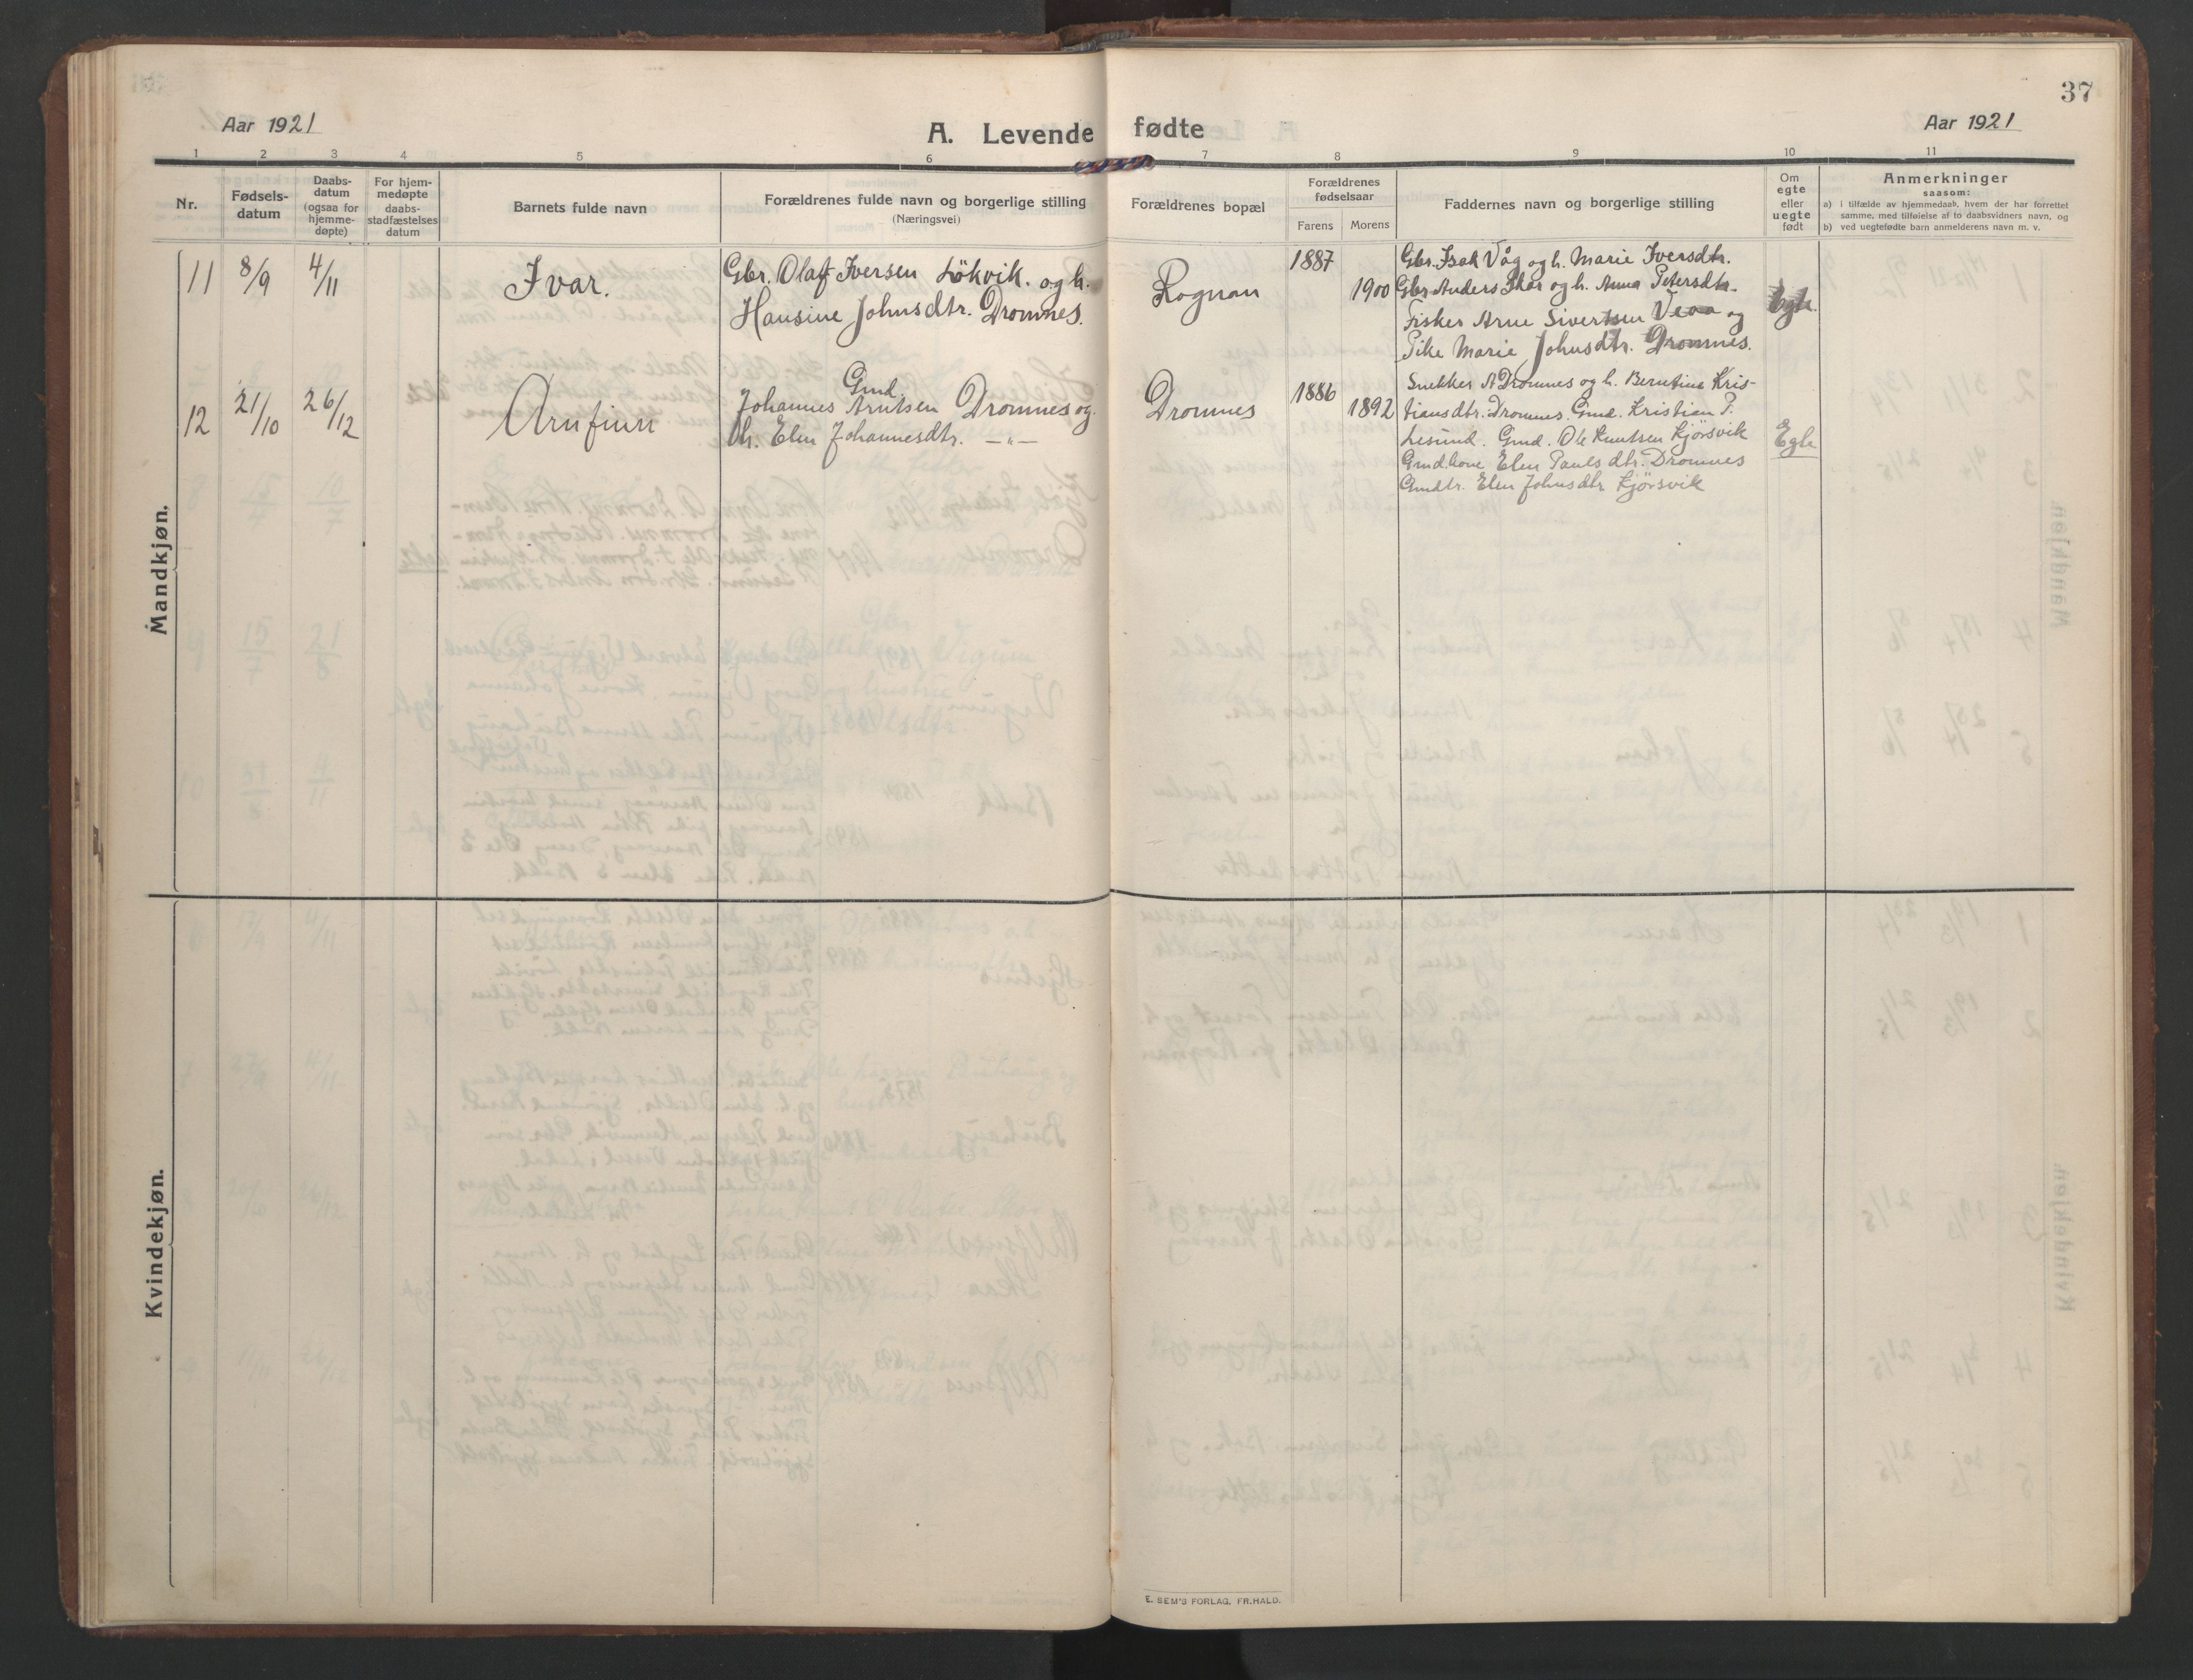 37
Aar 1921
A. Levende fødte
Aar 1921
1 2 3 4 5 6 7 8 9 10 11
Nr.
Fødsels-
datum
Daabs-
datum
(ogsaa for
hjemme-
døpte)
For hjem-
medøpte
daabs-
stadfæstelses
datum
Barnets fulde navn
Forældrenes fulde navn og borgerlige stilling
(Næringsvei)
Forældrenes bopæl
Forældrenes
fødselsaar
Farens
Morens
Faddernes navn og borgerlige stilling
Om
egte
eller
uegte
født
Anmerkninger
saasom:
a) i tilfælde av hjemmedaab, hvem der har forrettet
samme, med tilføielse af to daabsvidners navn, og
b) ved uegtefødte barn anmelderens navn m. v.
Mandkjøn.
11
8/9
4/11
Ivar.
Gbr. Olaf Iversen Løkvik. og h.
Hansine Johnsdtr. Dromnes.
Rognan
1887
1900
Gbr. Isak Våg og h. Marie Iversdtr.
Gbr Anders Skar og h. Anna Petersdtr.
Fisker Arne Sivertsen Veaa og
Pike Marie Johnsdtr. Dromnes.
Egte.
12
21/10
26/12
Arnfinn
Gmd
Johannes Arntsen Dromnes og
h. Elen Johannesdtr. —"—
Dromnes
1886
1892
Snekker A Dromnes og h. Berntine Kris-
tiansdtr. Dromnes. Gmd. Kristian P.
Lesund. Gmd. Ole Knutsen Kjørsvik
Gmd.kone Elen Paulsdtr. Dromnes
Gmdtr. Elen Johnsdtr Kjørsvik
Egte
Kvindekjøn.
E. SEM'S FORLAG, FR.HALD.